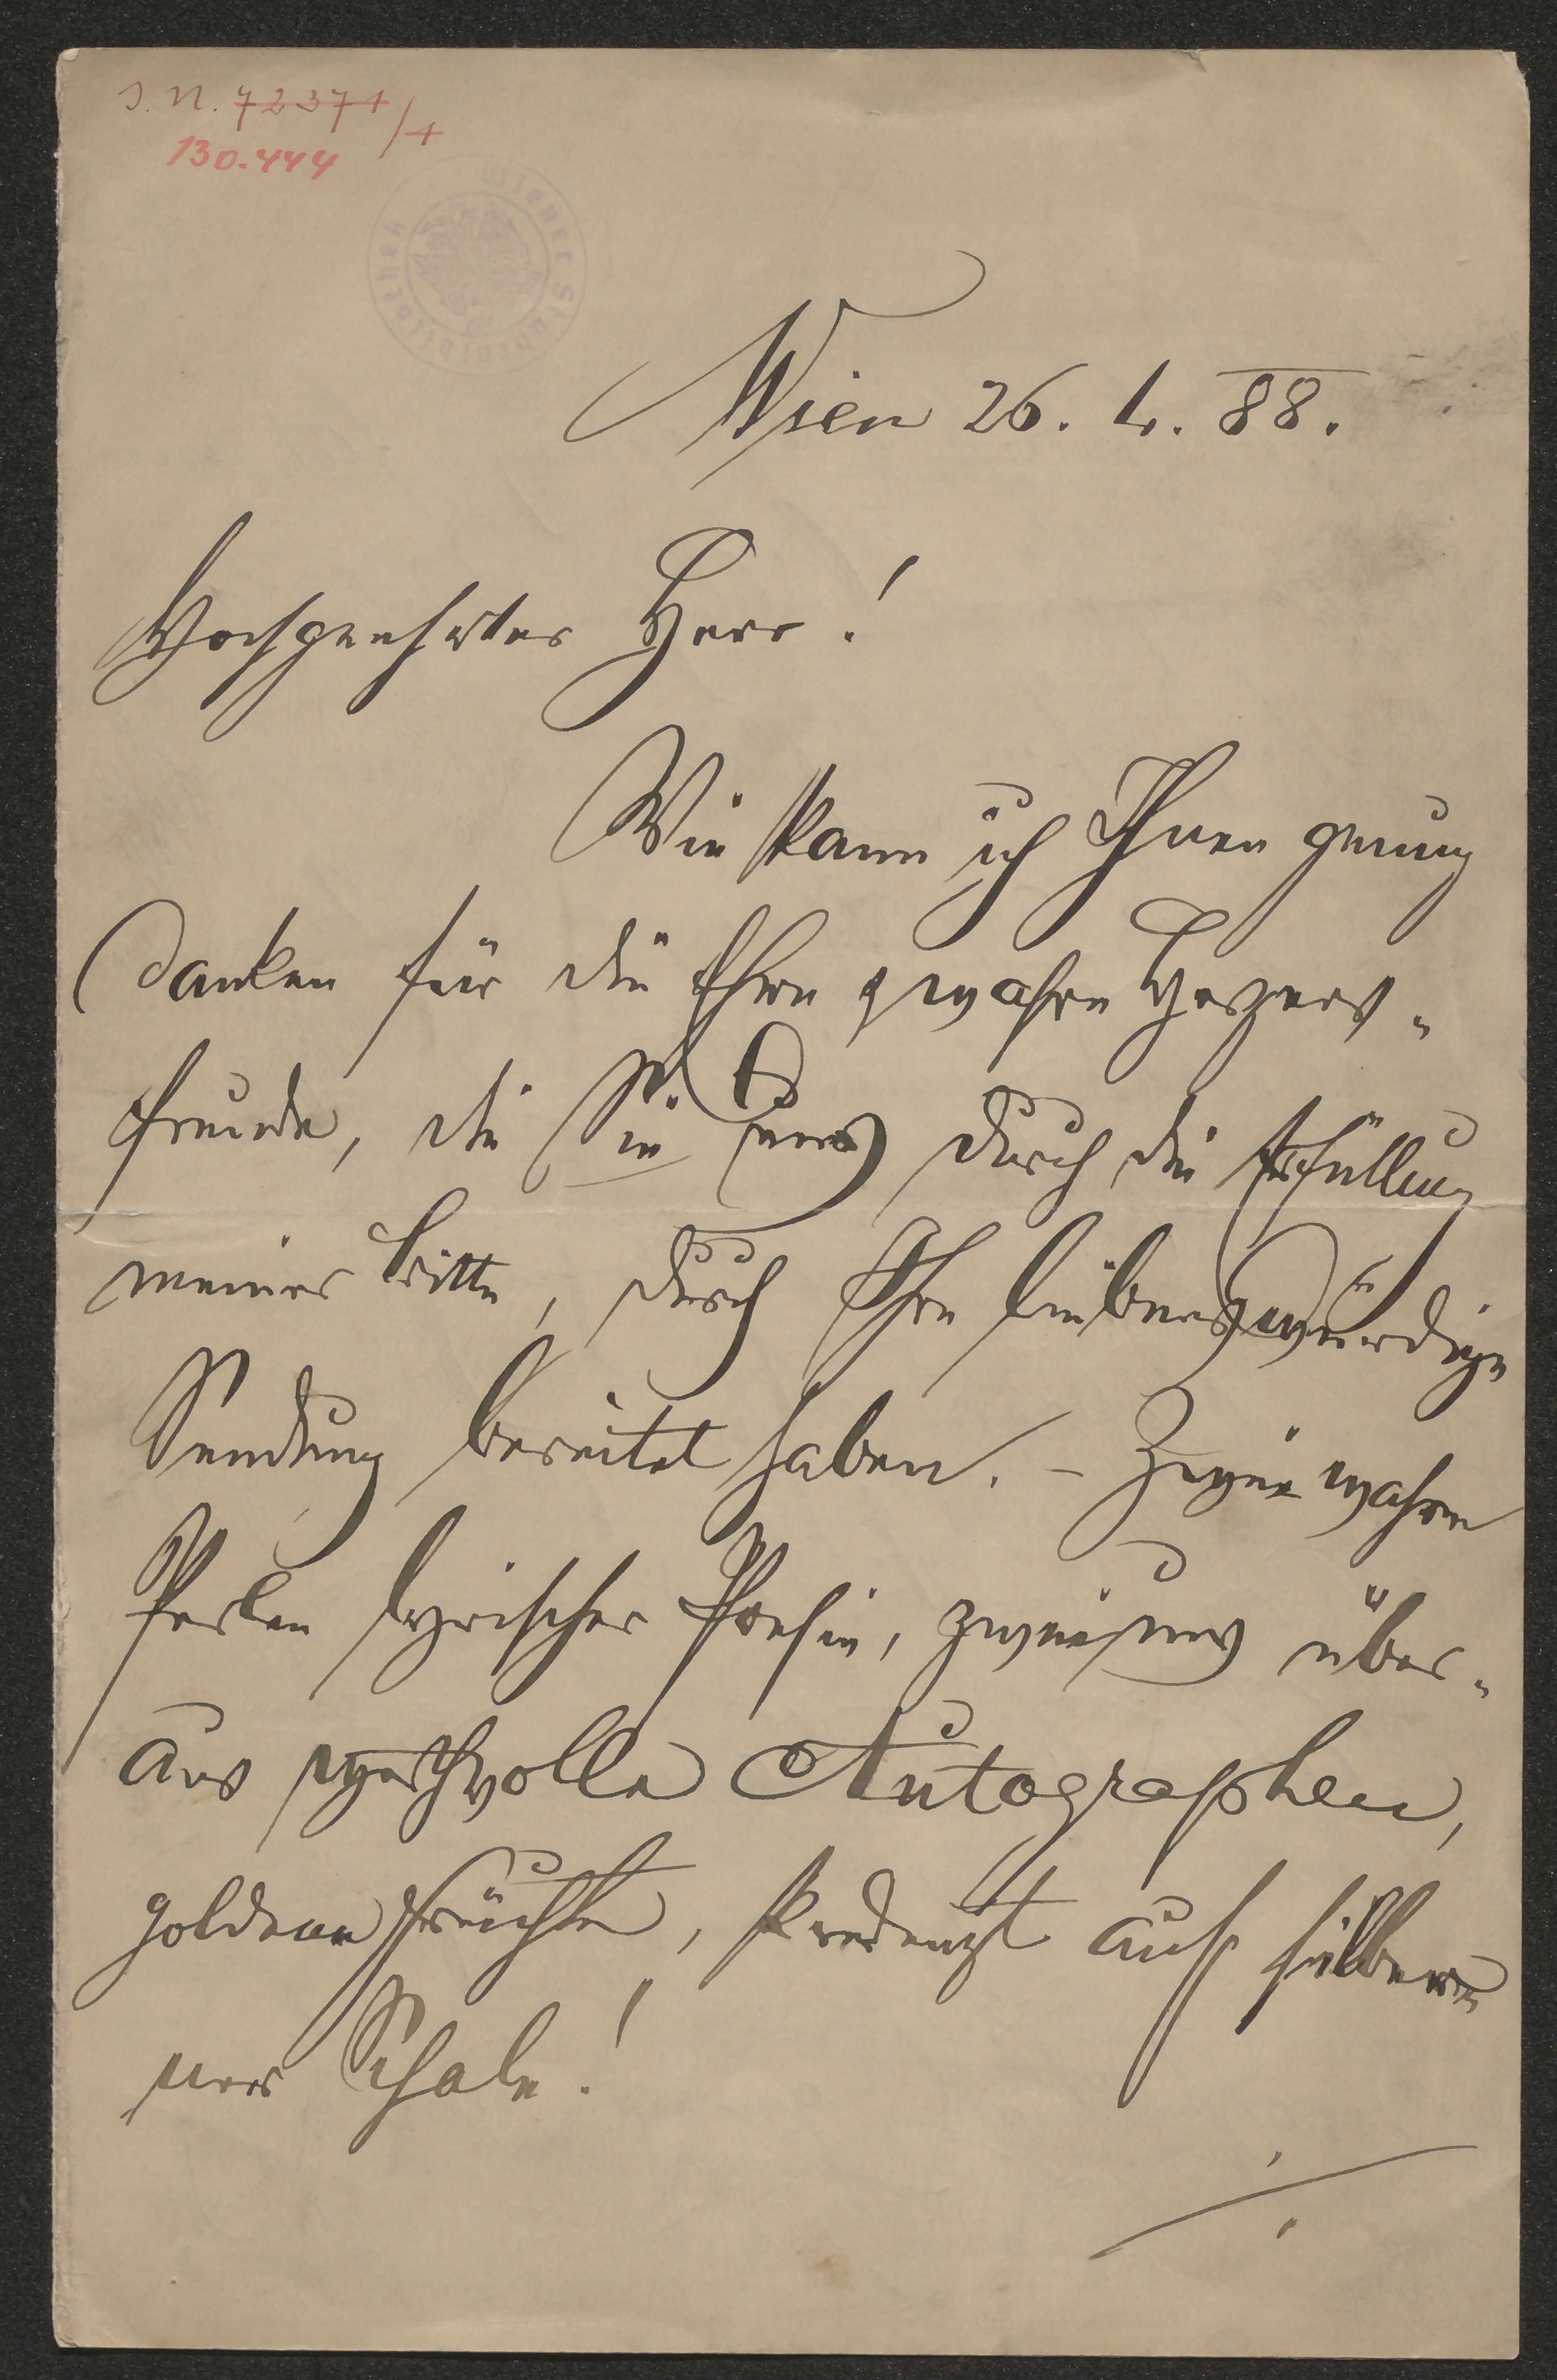 J. N. 72371/1
130.444
Wiener Stadtbibliothek
Wien 26. 4. 88.
Hochgeehrter Herr!
Wie kann ich Ihnen genug
danken für die Ehre & wahre Herzens-
freude, die Sie mir durch die Erfüllung
meiner Bitte, durch Ihre liebenswürdige
Sendung bereitet haben. – Zwei wahre
Perlen lyrischer Poesie, zwei uns über-
aus werthvolle Autographen,
goldene Früchte, kredenzt auf silber-
ner Schale!
./.